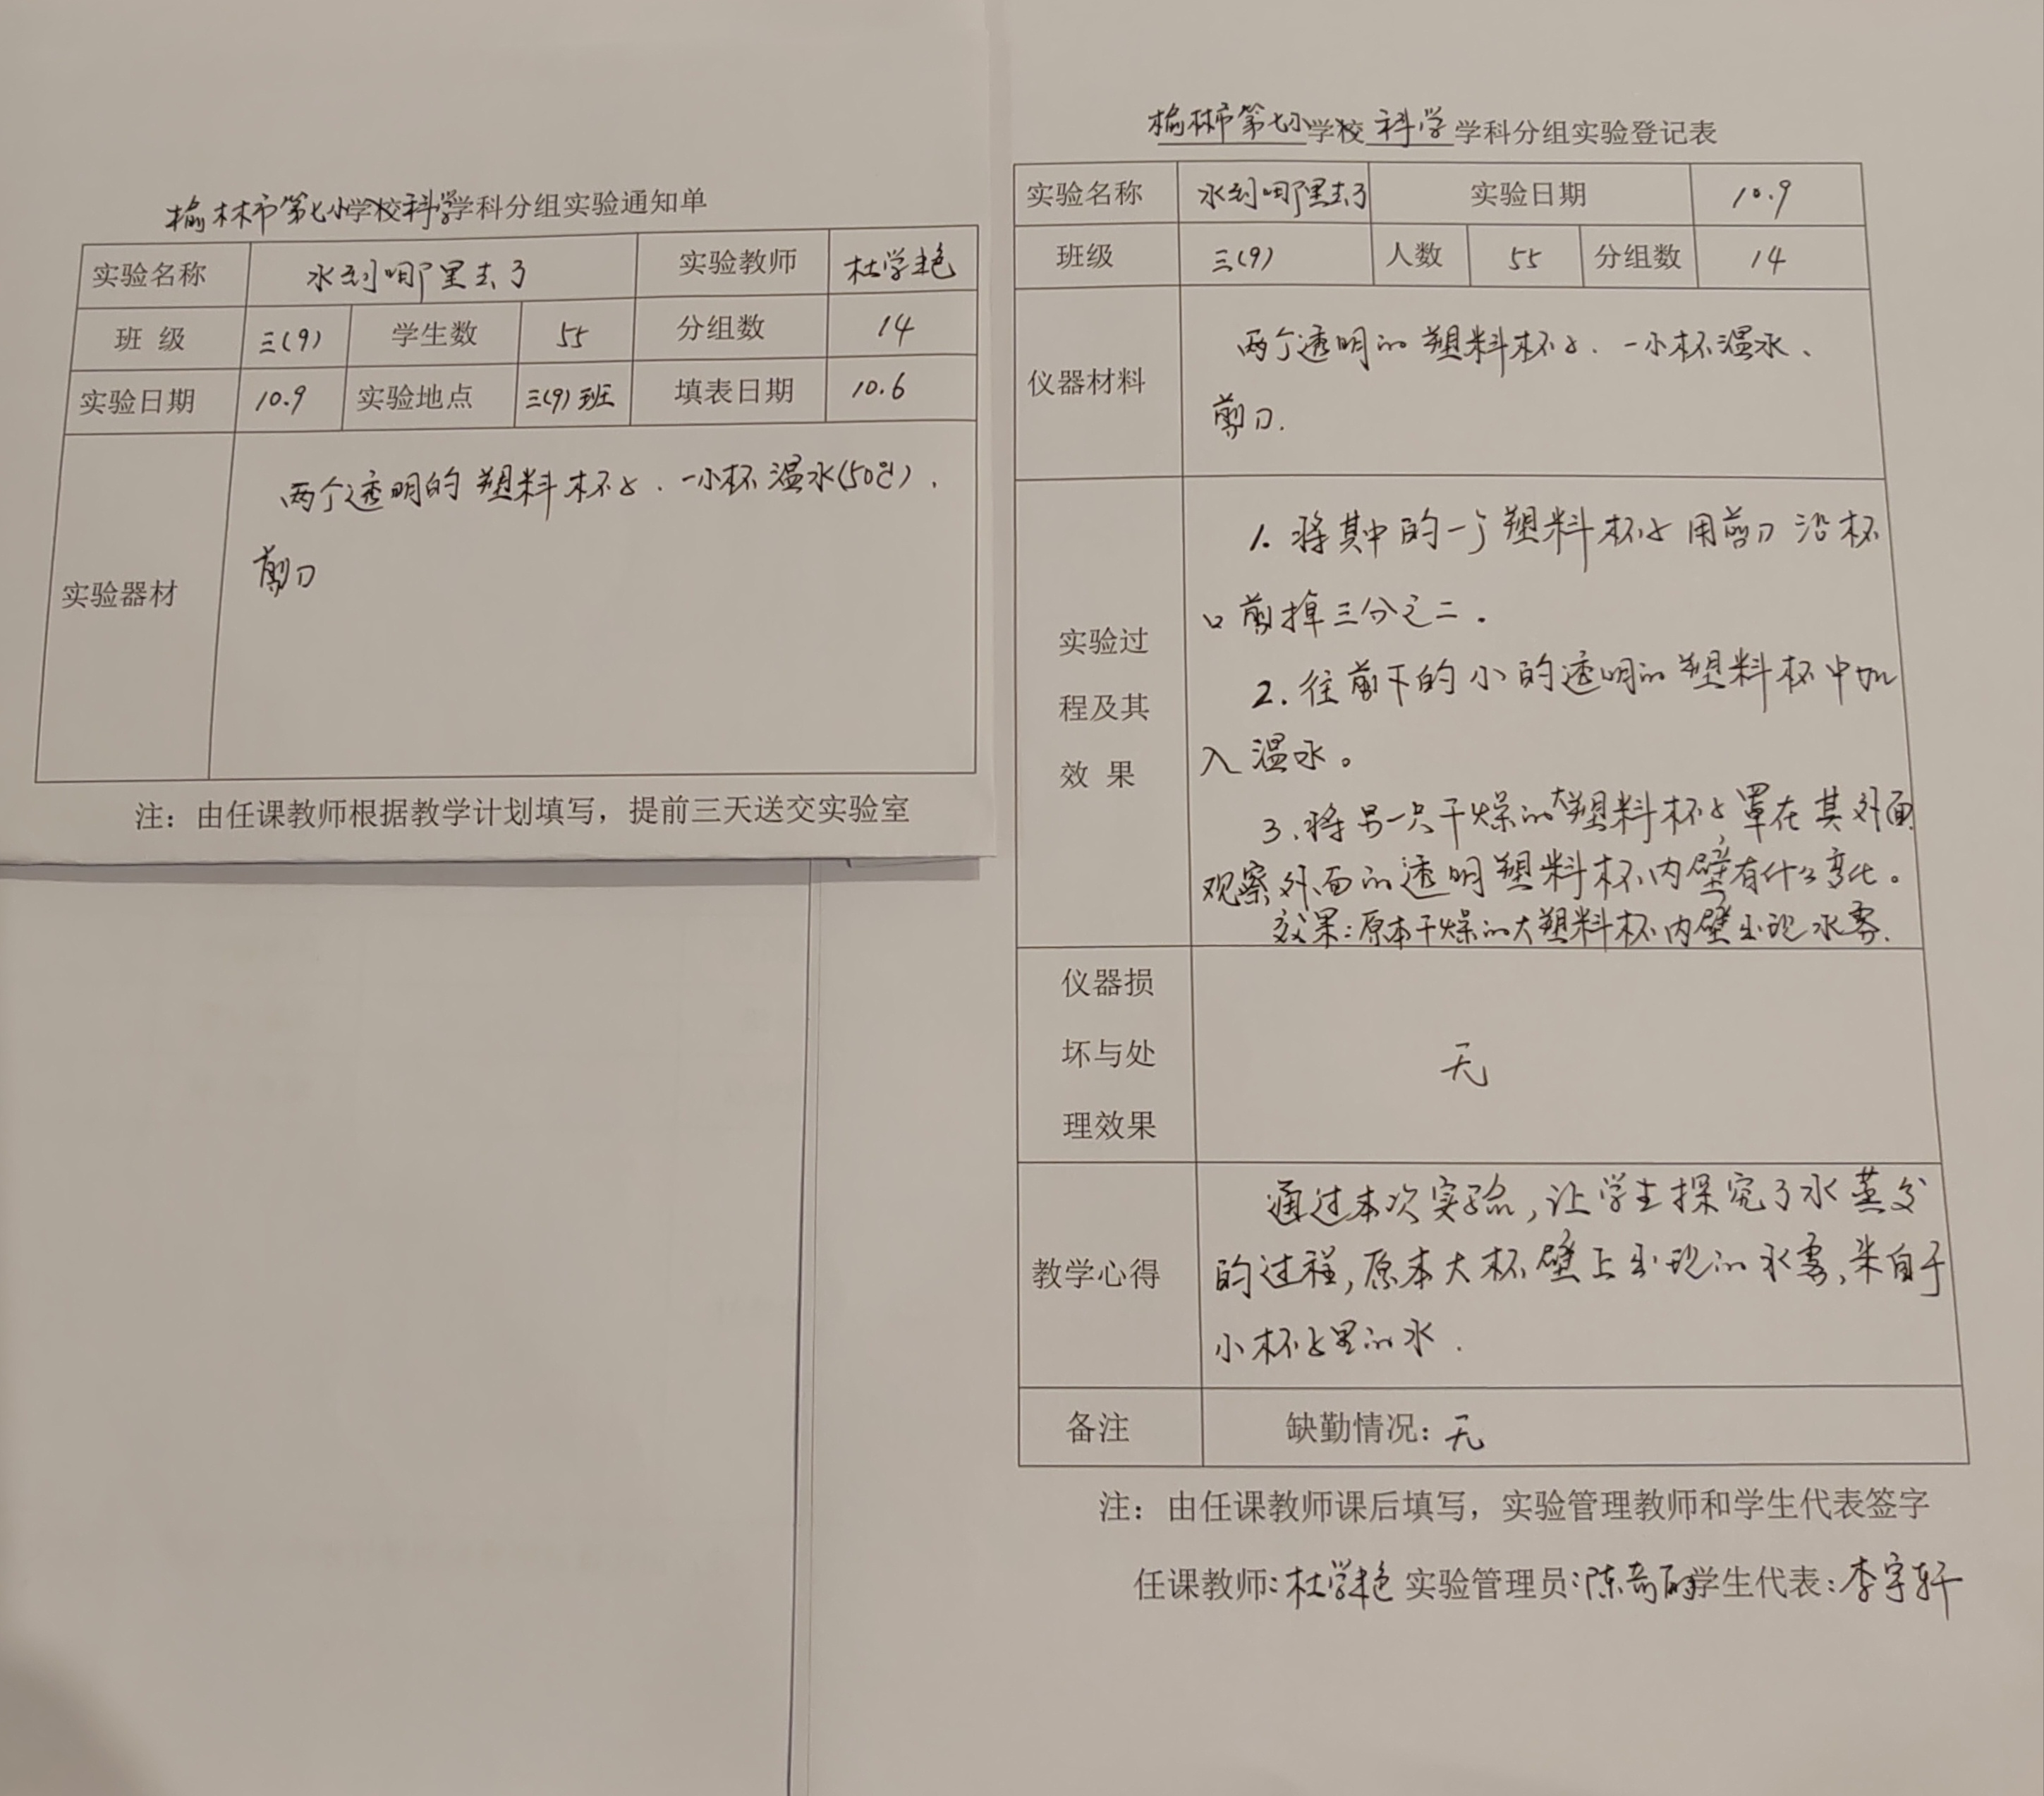 榆林市第七小学校科学学科分组实验通知单
实验名称 水到哪里去了 实验教师 杜学艳
班 级 三(9) 学生数 55 分组数 14
实验日期 10.9 实验地点 三(9)班 填表日期 10.6
实验器材
两个透明的塑料杯子、一小杯温水(50℃)、
剪刀
注：由任课教师根据教学计划填写，提前三天送交实验室
榆林市第七小学校科学学科分组实验登记表
实验名称 水到哪里去了 实验日期 10.9
班级 三(9) 人数 55 分组数 14
仪器材料
两个透明的塑料杯子、一小杯温水、
剪刀.
实验过
程及其
效 果
1. 将其中的一个塑料杯子用剪刀沿杯
口剪掉三分之二.
2. 往剪下的小的透明的塑料杯中加
入温水。
3. 将另一只干燥的大塑料杯子罩在其外面
观察外面的透明塑料杯内壁有什么变化。
效果:原本干燥的大塑料杯内壁出现水雾.
仪器损
坏与处
理效果
无
教学心得
通过本次实验,让学生探究了水蒸发
的过程,原本大杯壁上出现的水雾,来自于
小杯子里的水.
备注 缺勤情况：无
注：由任课教师课后填写，实验管理教师和学生代表签字
任课教师:杜学艳 实验管理员:陈奇丽 学生代表:李宇轩